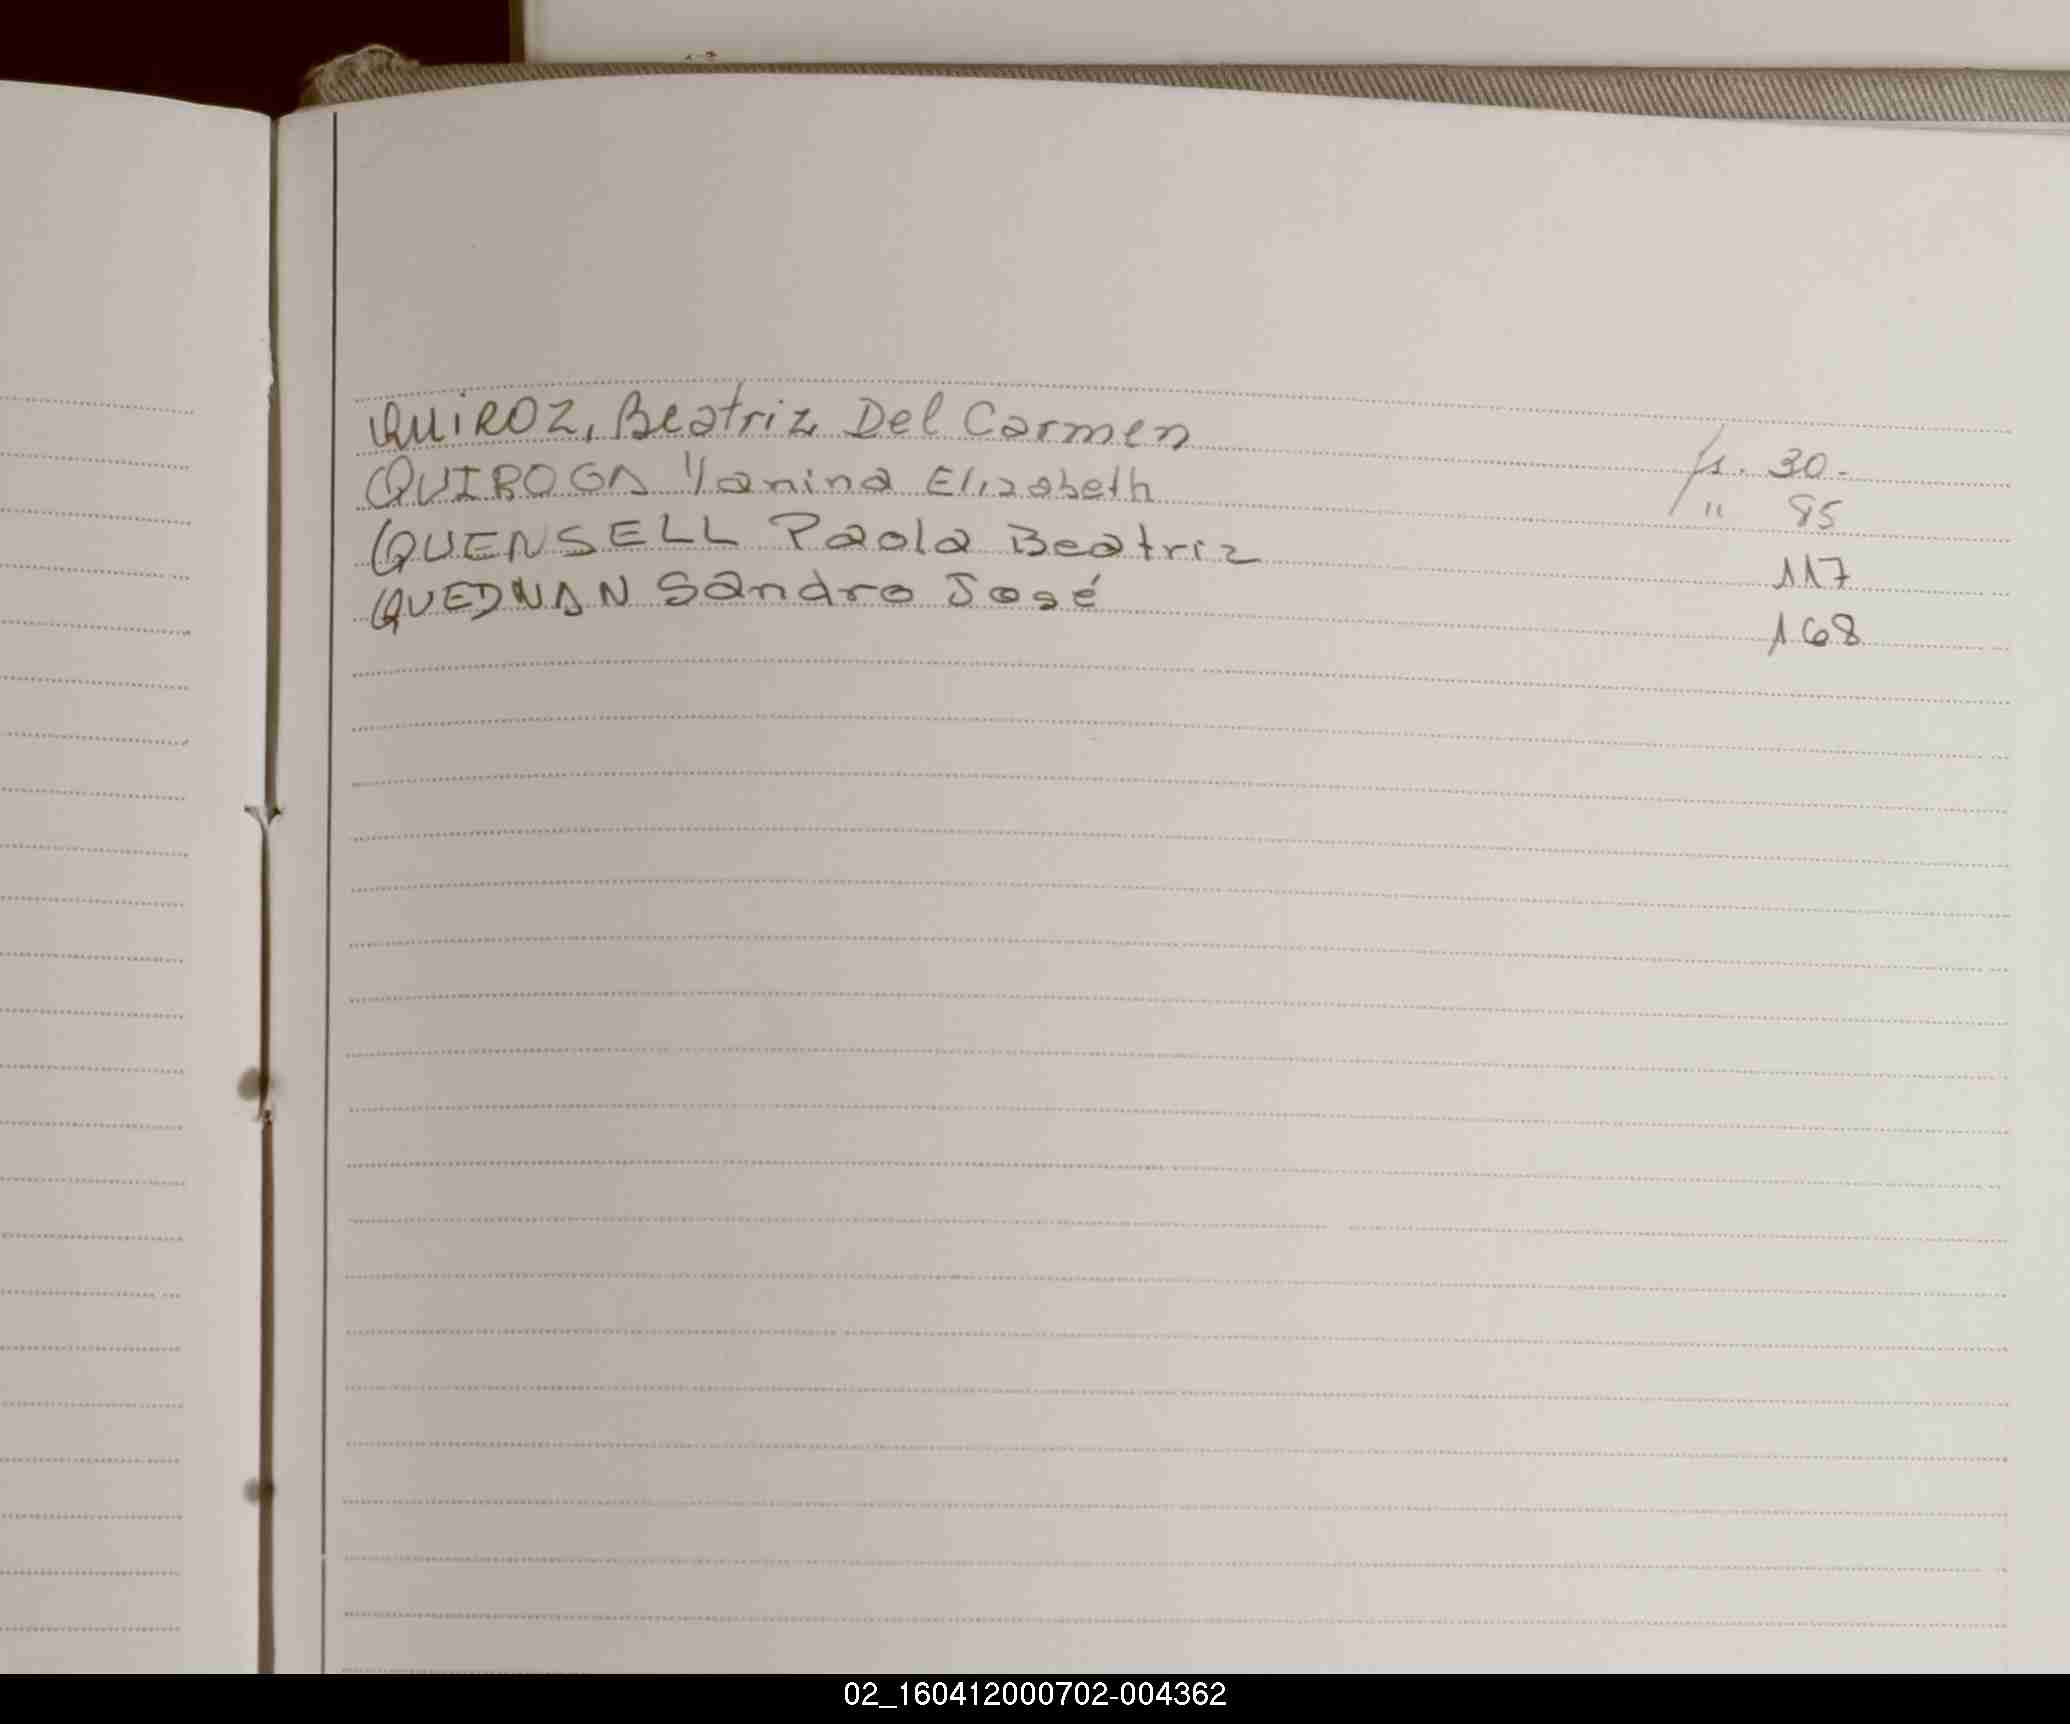 QUIROZ, Beatriz Del Carmen fs. 30.
QUIROGA Yanina Elizabeth " 85
QUENSELL Paola Beatriz 117
QUEDNAN Sandro José 168
02_160412000702-004362